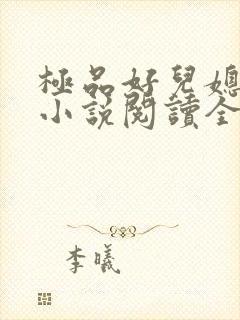 極品好兒媳
小說閱讀全
李曦